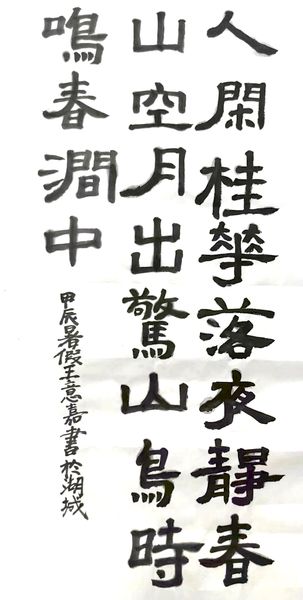 人閑桂華落夜靜春
山空月出驚山鳥時
鳴春澗中
甲辰暑假王意嘉書於湖城